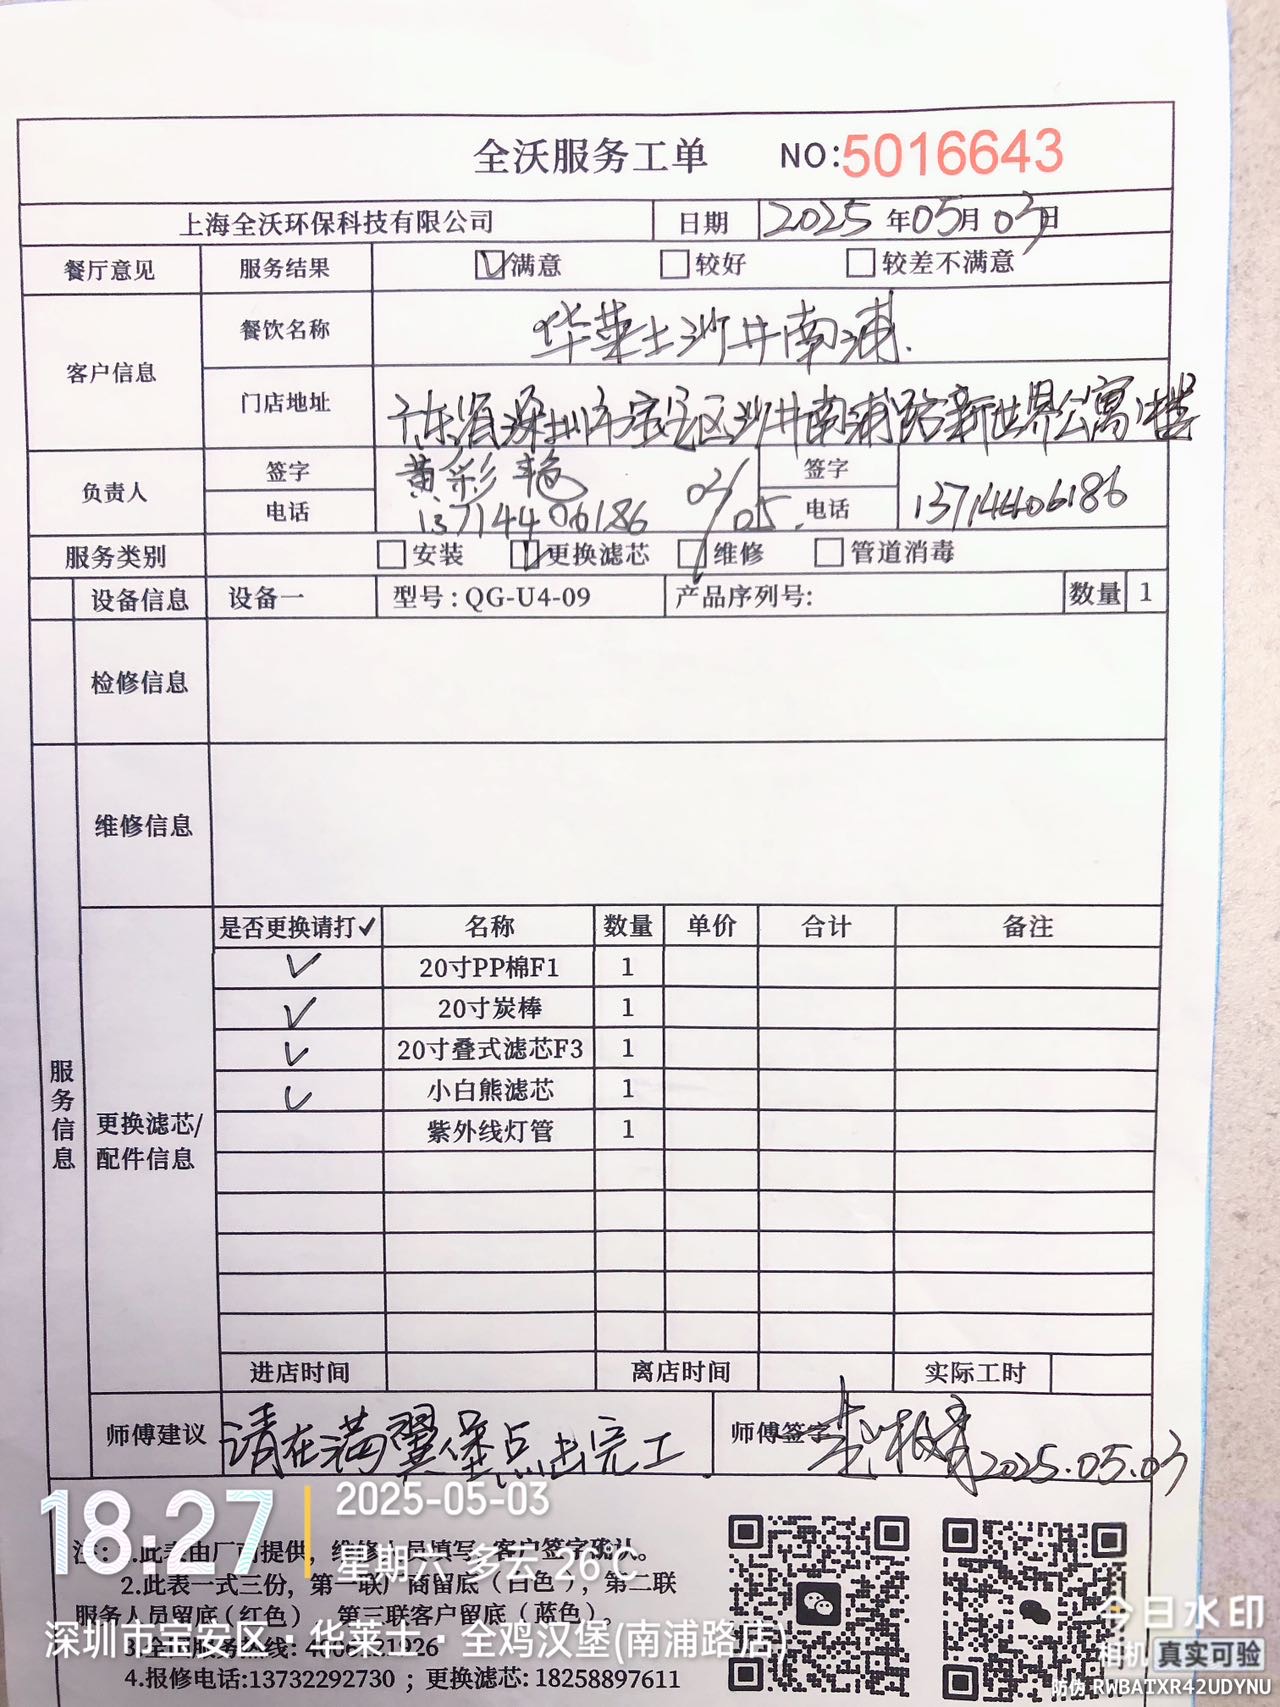 全沃服务工单 NO:5016643
上海全沃环保科技有限公司 日期 2025年05月03日
餐厅意见 服务结果 ☑满意 □较好 □较差不满意
客户信息 餐饮名称 华莱士沙井南浦.
门店地址 广东省深圳市宝安区沙井南浦路新世界公寓1楼
负责人 签字 黄彩艳 03/05. 签字
电话 13714406186 电话 13714406186
服务类别 □安装 ☑更换滤芯 □维修 □管道消毒
设备信息 设备一 型号:QG-U4-09 产品序列号: 数量 1
检修信息
维修信息
服务信息
更换滤芯/配件信息
是否更换请打✓ 名称 数量 单价 合计 备注
✓ 20寸PP棉F1 1
✓ 20寸炭棒 1
✓ 20寸叠式滤芯F3 1
✓ 小白熊滤芯 1
紫外线灯管 1
进店时间 离店时间 实际工时
师傅建议 请在满翼保点击完工. 师傅签字 2025.05.03
18:27 2025-05-03
星期六 多云 26℃
注:1.此表由厂商提供,维修人员填写,客户签字确认。
2.此表一式三份,第一联厂商留底(白色),第二联
服务人员留底(红色),第三联客户留底(蓝色)。
深圳市宝安区·华莱士·全鸡汉堡(南浦路店)
4.报修电话:13732292730 ; 更换滤芯: 18258897611
今日水印
相机 真实可验
防伪 RWBATXR42UDYNU